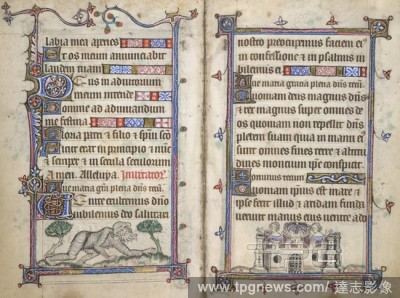 labia mea aperies
Et os meum annunciabit
laudem tuam
Deus in adiutorium
meum intende
Domine ad adiuvandum
me festina
Gloria patri et filio et spũi sco
sicut erat in principio et nũc
et semper et in secula seculorum
Amen. Alleluya. Invitator
Aue maria gra plena dñs tecũ.
Venite exultemus dño
iubilemus deo salutari
nostro preocupemus faciem ei
in confessione et in psalmis
iubilemus ei
Aue maria gratia plena dñs tecũ
Quoniam deus magnus dñs
et rex magnus super omnes de
os quoniam non repellet dñs
plebem suam quia in manu ei
sunt omnes fines terre et alti
dines moncium ipe conspicit
Dominus tecum
Quoniam ipius est mare et
ipse fecit illud et aridam fund
uerunt manus eius uenite ad
www.tpgnews.com / 達志影像